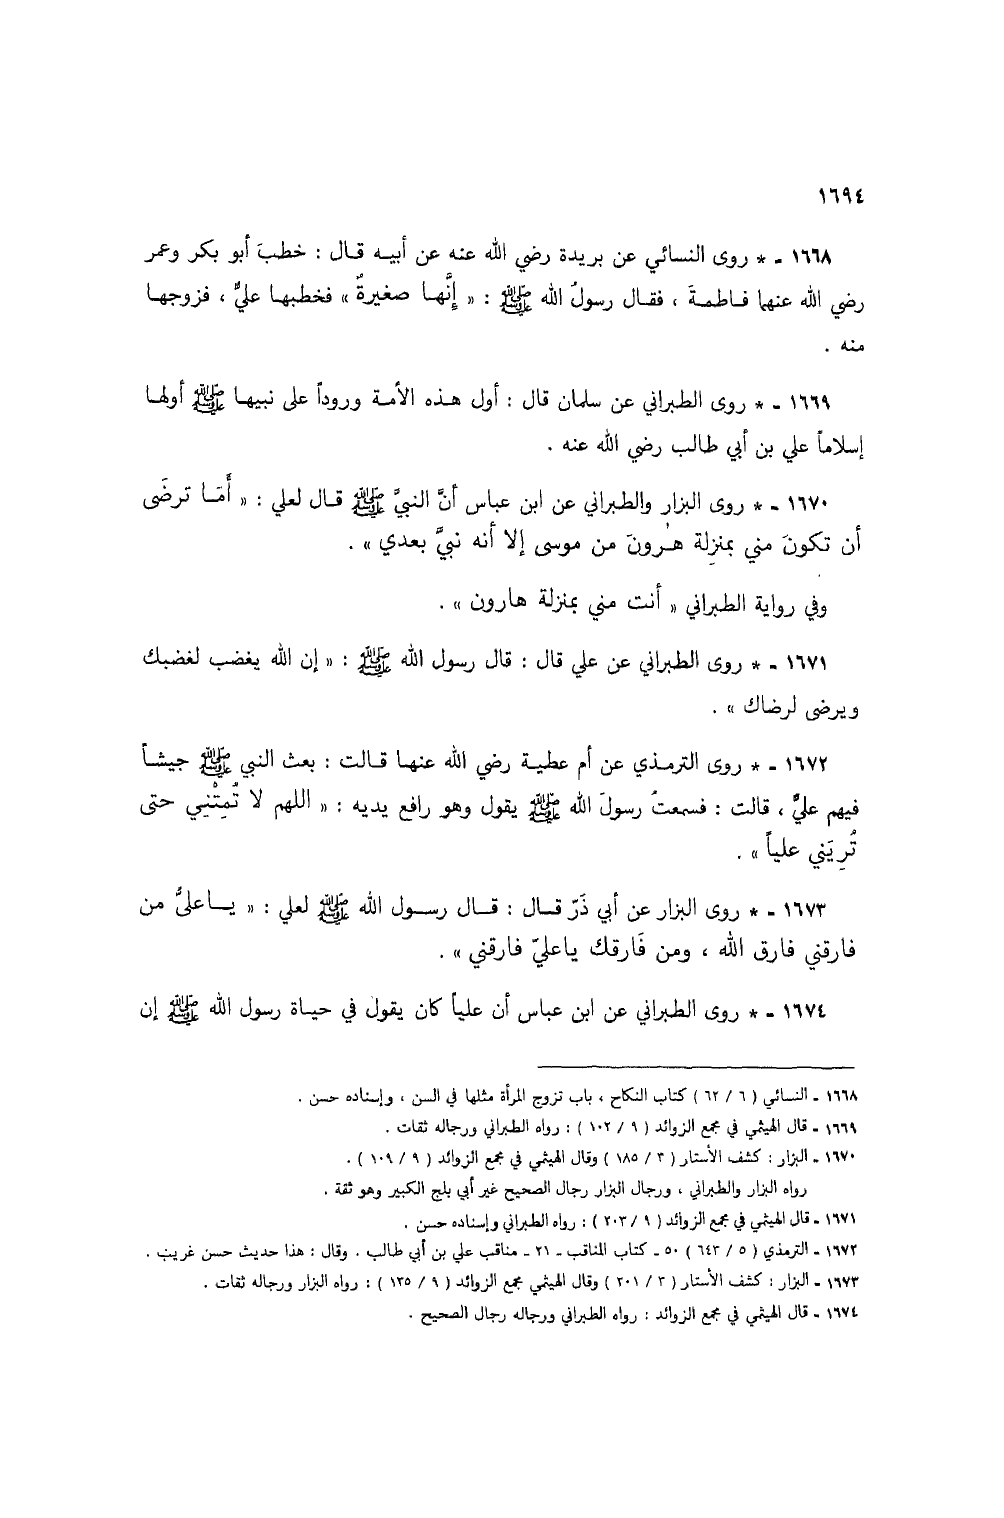 ١٦٩٤
١٦٦٨ - * روى النسائي عن بريدة رضي الله عنه عن أبيـه قـال : خطبَ أبو بكر وعمر
رضي الله عنهما فـاطمـةَ ، فقـال رسولُ الله ﷺ : « إنَّهـا صغيرةٌ » فخطبهـا عليٌّ ، فزوجهـا
منه .
١٦٦٩ - * روى الطبراني عن سلمان قال : أول هـذه الأمـة وروداً على نبيهـا ﷺ أولهـا
إسلاماً علي بن أبي طالب رضي الله عنه .
١٦٧٠ - * روى البزار والطبراني عن ابن عباس أنَّ النبيَّ ﷺ قـال لعلي : « أَمَـا ترضَى
أن تكونَ مني بمنزِلة هـٰرونَ من موسى إلا أنه نبيَّ بعدي » .
وفي رواية الطبراني « أنت مني بمنزلة هارون » .
١٦٧١ - * روى الطبراني عن علي قال : قال رسول الله ﷺ : « إن الله يغضب لغضبك
ويرضى لرضاك » .
١٦٧٢ - * روى الترمـذي عن أم عطيـة رضي الله عنهـا قـالت : بعث النبي ﷺ جيشـاً
فيهم عليٌّ ، قالت : فسمعتُ رسولَ الله ﷺ يقول وهو رافع يديه : « اللهم لا تُمِتْنِي حتى
تُرِيَني علياً » .
١٦٧٣ - * روى البزار عن أبي ذَرّ قـال : قـال رسـول الله ﷺ لعلي : « يـاعليُّ من
فارقني فارق الله ، ومن فَارقك ياعليّ فارقني » .
١٦٧٤ - * روى الطبراني عن ابن عباس أن علياً كان يقول في حيـاة رسول الله ﷺ إن
١٦٦٨ - النسائي ( ٦ / ٦٢ ) كتاب النكاح ، باب تزوج المرأة مثلها في السن ، وإسناده حسن .
١٦٦٩ - قال الهيثمي في مجمع الزوائد ( ٩ / ١٠٢ ) : رواه الطبراني ورجاله ثقات .
١٦٧٠ - البزار : كشف الأستار ( ٣ / ١٨٥ ) وقال الهيثمي في مجمع الزوائد ( ٩ / ١٠٩ ) .
رواه البزار والطبراني ، ورجال البزار رجال الصحيح غير أبي بلج الكبير وهو ثقة .
١٦٧١ - قال الهيثمي في مجمع الزوائد ( ٩ / ٢٠٣ ) : رواه الطبراني وإسناده حسن .
١٦٧٢ - الترمذي ( ٥ / ٦٤٣ ) ٥٠ - كتاب المناقب - ٢١ - مناقب علي بن أبي طالب . وقال : هذا حديث حسن غريب .
١٦٧٣ - البزار : كشف الأستار ( ٣ / ٢٠١ ) وقال الهيثمي مجمع الزوائد ( ٩ / ١٣٥ ) : رواه البزار ورجاله ثقات .
١٦٧٤ - قال الهيثمي في مجمع الزوائد : رواه الطبراني ورجاله رجال الصحيح .